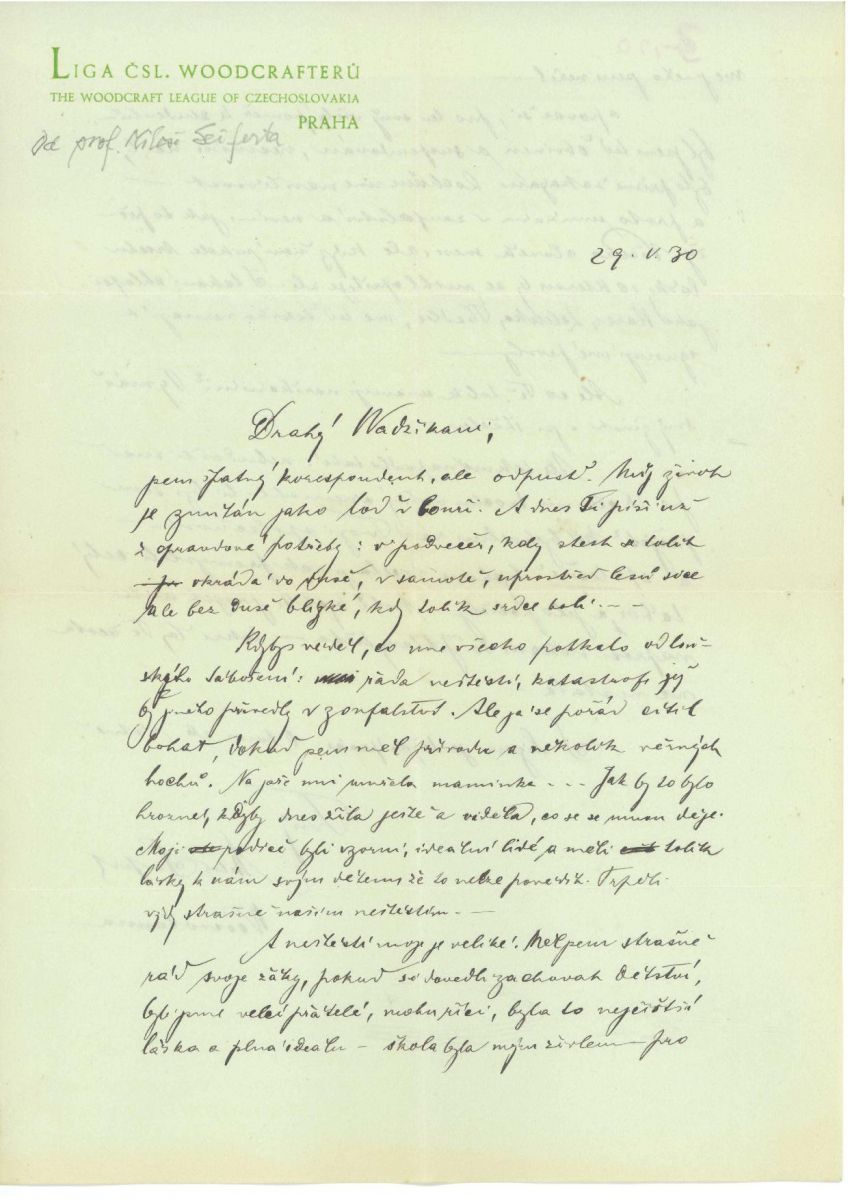 LIGA ČSL. WOODCRAFTERŮ
THE WOODCRAFT LEAGUE OF CZECHOSLOVAKIA
PRAHA
Od prof. Miloše Seiferta
29. V. 30
Drahý Wadžikani,
jsem špatný korespondent, ale odpusť. Můj život
je zmítán jako loď v bouři. A dnes Ti píši už
z opravdové potřeby: v podvečer, kdy stesk se tolik
vkrádá do duše, v samotě, uprostřed lesů sice
ale bez duše blízké, kdy tolik srdce bolí. - -
Kdybys věděl, co mne všecko potkalo od loň-
ského táboření: řada neštěstí, katastrof, jež
by jiného přivedly v zoufalství. Ale já se pořád cítil
bohat, dokud jsem měl přírodu a několik věrných
hochů. Na jaře mi umřela maminka - - - Jak by to bylo
hrozné, kdyby dnes žila ještě a viděla, co se se mnou děje.
Moji rodiče byli vzorní, ideální lidé a měli tolik
lásky k nám svým dětem že to nelze povědět. Trpěli
vždy strašně naším neštěstím. -
A neštěstí moje je veliké. Měl jsem strašně
rád svoje žáky, pokud si dovedli zachovat dětství,
byli jsme velcí přátelé, mohu říci, byla to nejčistší
láska a plná ideálu - škola byla mým živlem - pro